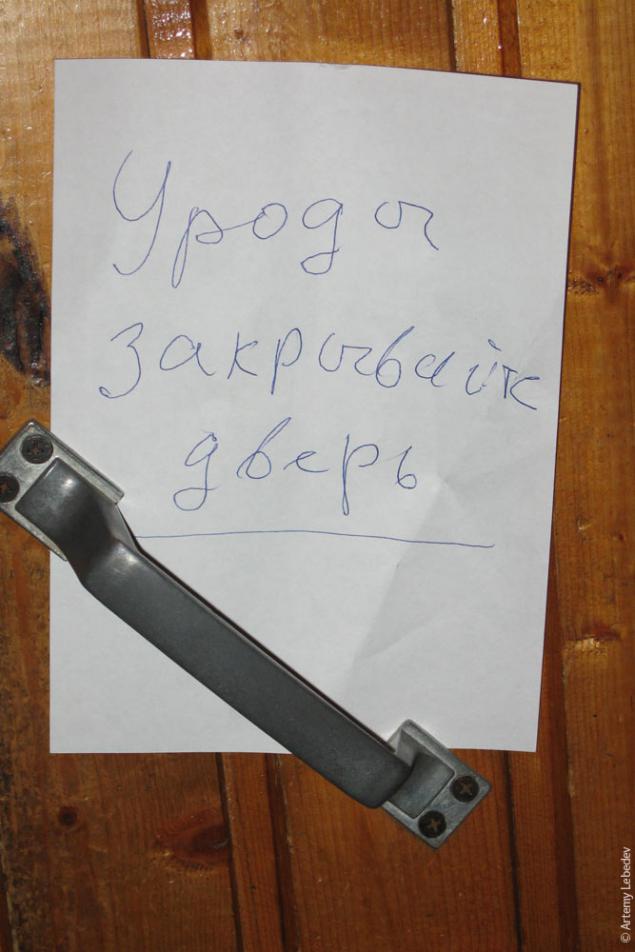 Уроды
закрывайте
дверь
© Artemy Lebedev